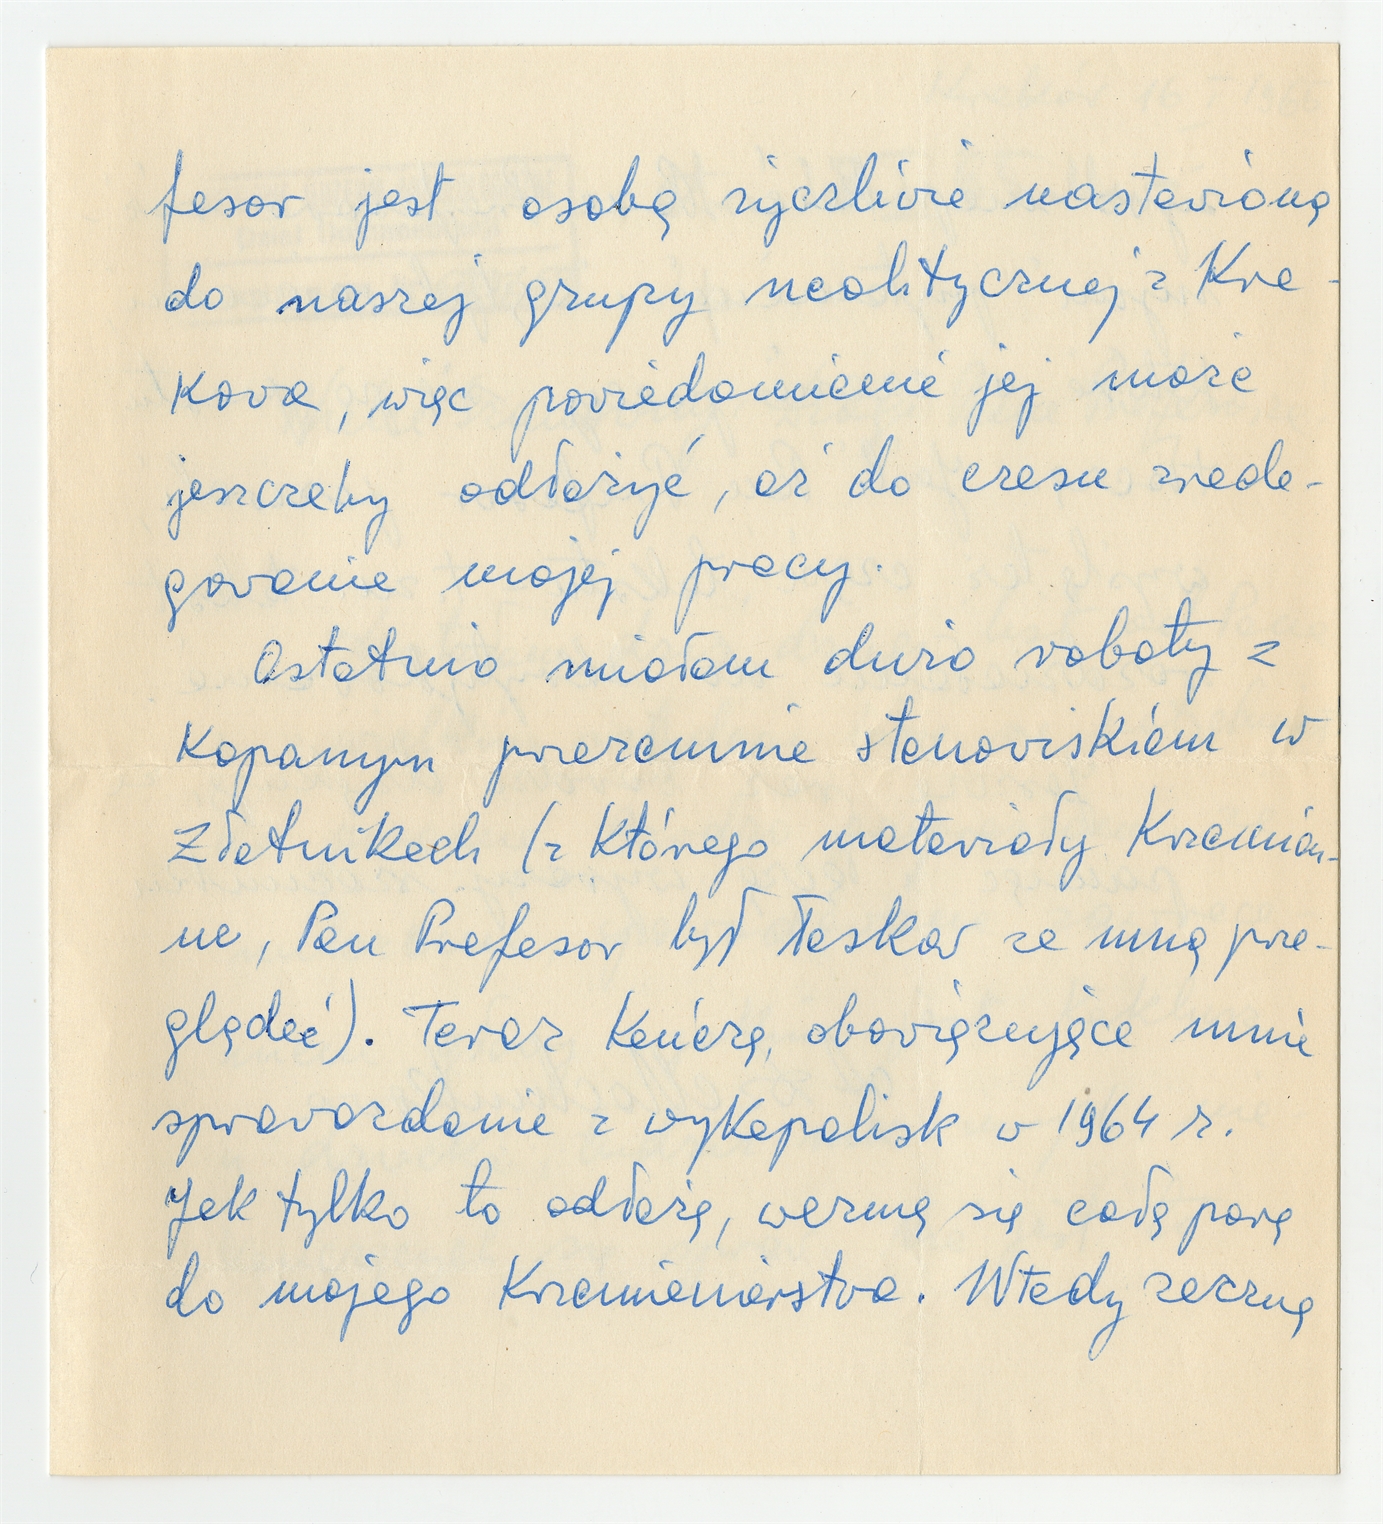 fesor jest osobą życzliwie nastawioną
do naszej grupy neolitycznej z Kra-
kowa, więc powiadomienie jej może
jeszczeby odłożyć, aż do czasu zreda-
gowania mojej pracy.
Ostatnio miałam dużo roboty z
kopanym przezemnie stanowiskiem w
Złotnikach (z którego materiały krzemien-
ne, Pan Profesor był łaskaw ze mną prze-
glądać). Teraz kończę, obowiązujące mnie
sprawozdanie z wykopalisk w 1964 r.
Jak tylko to odłożę, wezmę się całą parą
do mojego krzemieniarstwa. Wtedy zacznę